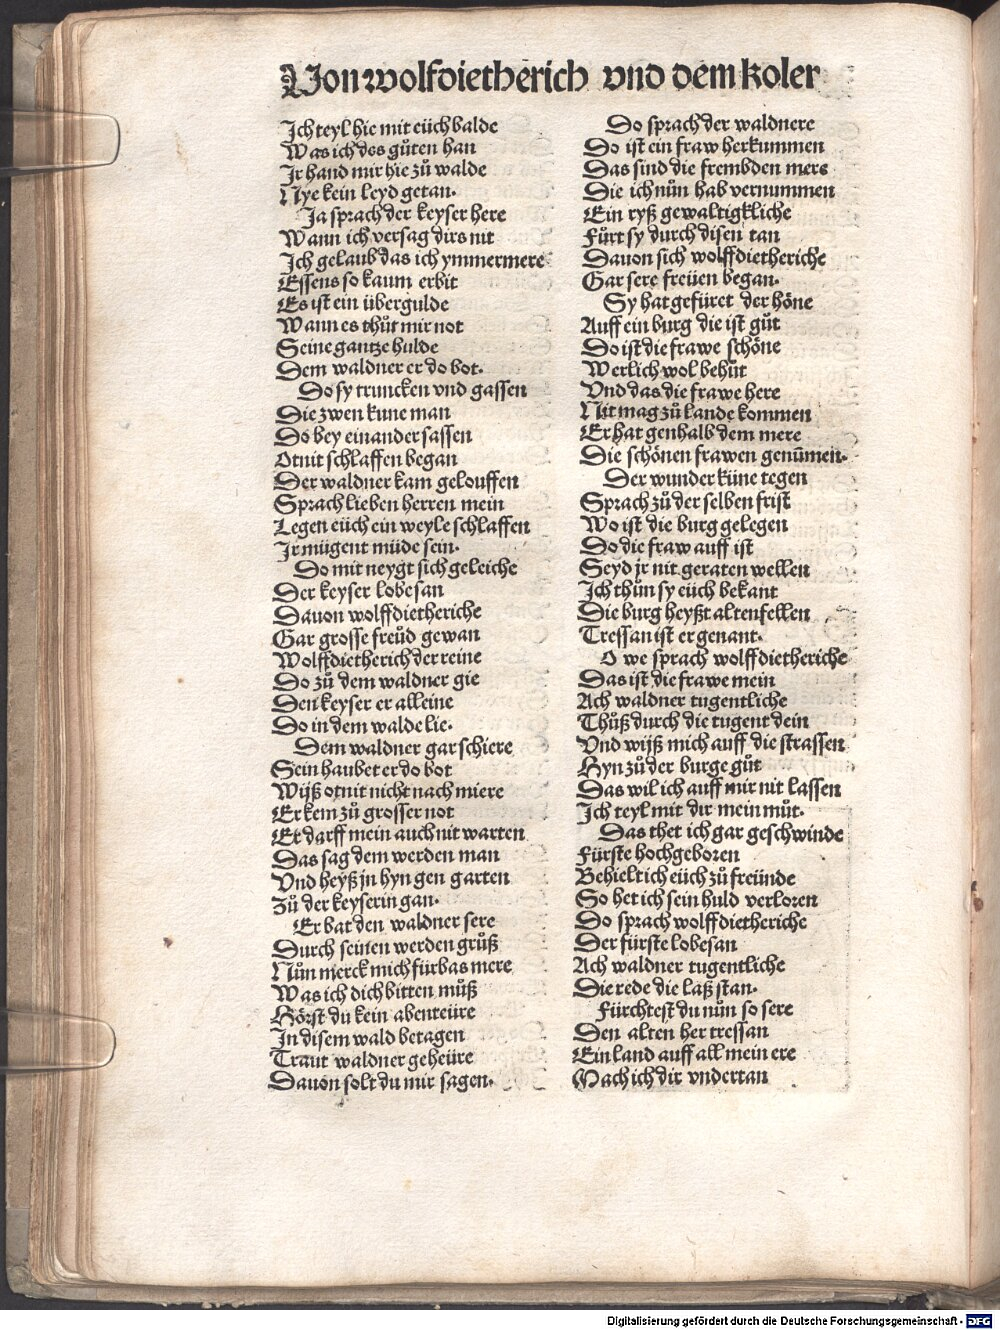 Von wolfdietherich vnd dem koler
Ich teyl hie mit eüch balde
Was ich des gůten han
Ir hand mir hie zů walde
Nye kein leyd getan.
Ja sprach der keyser here
Wann ich versag dirs nit
Ich gelaub das ich ymmermere
Essens so kaum erbit
Es ist ein übergulde
Wann es thůt mir not
Seine gantze hulde
Dem waldner er do bot.
Do sy truncken vnd gassen
Die zwen kune man
Do bey einander sassen
Otnit schlaffen began
Der waldner kam gelouffen
Sprach lieben herren mein
Legen eüch ein weyle schlaffen
Ir mügent müde sein.
Do mit neygt sich geleiche
Der keyser lobesan
Dauon wolffdietheriche
Gar grosse freüd gewan
Wolffdietherich der reine
Do zů dem waldner gie
Den keyser er alleine
Do in dem walde lie.
Dem waldner gar schiere
Sein haubet er do bot
Wijß otnit nicht nach miere
Er kem zů grosser not
Er darff mein auch nit warten
Das sag dem werden man
Vnd heyß jn hyn gen garten
Zů der keyserin gan.
Er bat den waldner sere
Durch seinen werden grůß
Nůn merck mich fürbas mere
Was ich dich bitten můß
Hörst du kein abenteüre
In disem wald betagen
Traut waldner geheüre
Dauon solt du mir sagen.
Do sprach der waldnere
Do ist ein fraw her kummen
Das sind die frembden mere
Die ich nůn hab vernummen
Ein ryß gewaltigkliche
Fůrt sy durch disen tan
Dauon sich wolffdietheriche
Gar sere freüen began.
Sy hat gefüret der höne
Auff ein burg die ist gůt
Do ist die frawe schöne
Werlich wol behůt
Vnd das die frawe here
Nit mag zů lande kommen
Er hat genhalb dem mere
Die schönen frawen genūmen.
Der wunder küne tegen
Sprach zů der selben frist
Wo ist die burg gelegen
Do die fraw auff ist
Seyd jr nit geraten wellen
Ich thůn sy eüch bekant
Die burg heyßt altenfellen
Tressan ist er genant.
O we sprach wolffdietheriche
Das ist die frawe mein
Ach waldner tugentliche
Thůß durch die tugent dein
Vnd wijß mich auff die strassen
Hyn zů der burge gůt
Das wil ich auff mir nit lassen
Ich teyl mit dir mein můt.
Das thet ich gar geschwinde
Fürste hochgeboren
Behielt ich eüch zů freünde
So het ich sein huld verloren
Do sprach wolffdietheriche
Der fürste lobesan
Ach waldner tugentliche
Die rede die laß stan.
Fürchtest du nůn so sere
Den alten her tressan
Ein land auff all mein ere
Mach ich dir vndertan
Digitalisierung gefördert durch die Deutsche Forschungsgemeinschaft - DFG